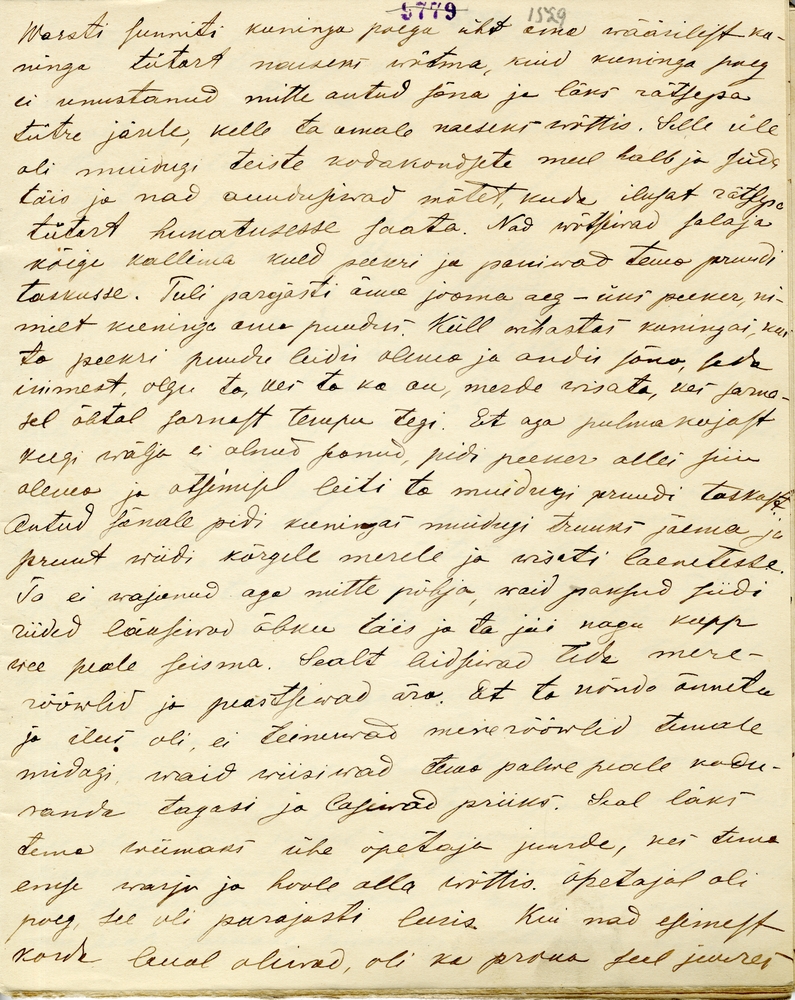 5779 1529
Warsti sunniti kuninga poega üht oma wäärilist ku-
ninga tütart naeseks wõtma, kuid kuninga poeg
ei unustanud mitte antud sõna ja läks rätsepa
tütre järele, kelle ta omale naeseks wõttis. Selle üle
oli muidugi teiste kodakondsete meel halb ja süda
täis ja nad auudusiwad mõtet, kuda ilusat rätsepa
tütart hukatusesse saata. Nad wõtsiwad salaja
kõige kallima kuld peekri ja paniwad tema pruudi
taskusse. Tuli parajasti õnne jooma aeg – üks peeker, ni-
melt kuninga oma puudus. Küll wihastas kuningas, kui
ta peekri puudu leidis olewa ja andis sõna, seda
inimest, olgu ta, kes ta ka on, merde wisata, kes sarna-
sel õhtal sarnast tempu tegi. Et aga pulmakojast
keegi wälja ei olnud saanud, pidi peeker alles siin
olema ja otsimisel leiti ta muidugi pruudi taskust.
Antud sõnale pidi kuningas muidugi truuks jäema ja
pruut wiidi kõrgele merele ja wisati laenetesse.
Ta ei wajonud aga mitte põhja, waid paksud siidi
riided läksiwad õhku täis ja ta jäi nagu kupp
wee peale seisma. Sealt leidsiwad teda mere-
rööwlid ja peastsiwad ära. Et ta nõnda õnnetu
ja ilus oli, ei teinuwad mererööwlid temale
midagi, waid wiisiwad tema palwe peale kodu-
randa tagasi ja lasiwad priiks. Seal läks
tema wiimaks ühe õpetaja juurde, kes tema
enese warju ja hoole alla wõttis. Õpetajal oli
poeg, see oli parajasti leeris. Kui nad esimest
korda laual oliwad, oli ka proua seel juures